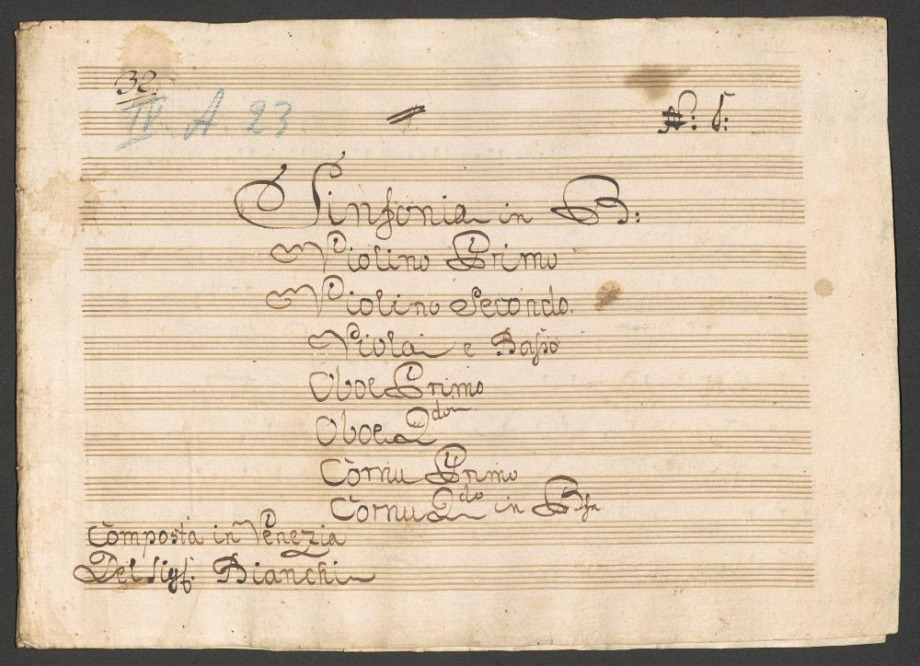 32.
IV. A. 23.
N: 6:
Sinfonia in B:
Violino Primo
Violino Secondo.
Viola e Basso
Oboe Primo
Oboe 2do
Cornu Primo
Cornu 2do in Bfa
Composta in Venezia
Del Sigr: Bianchi